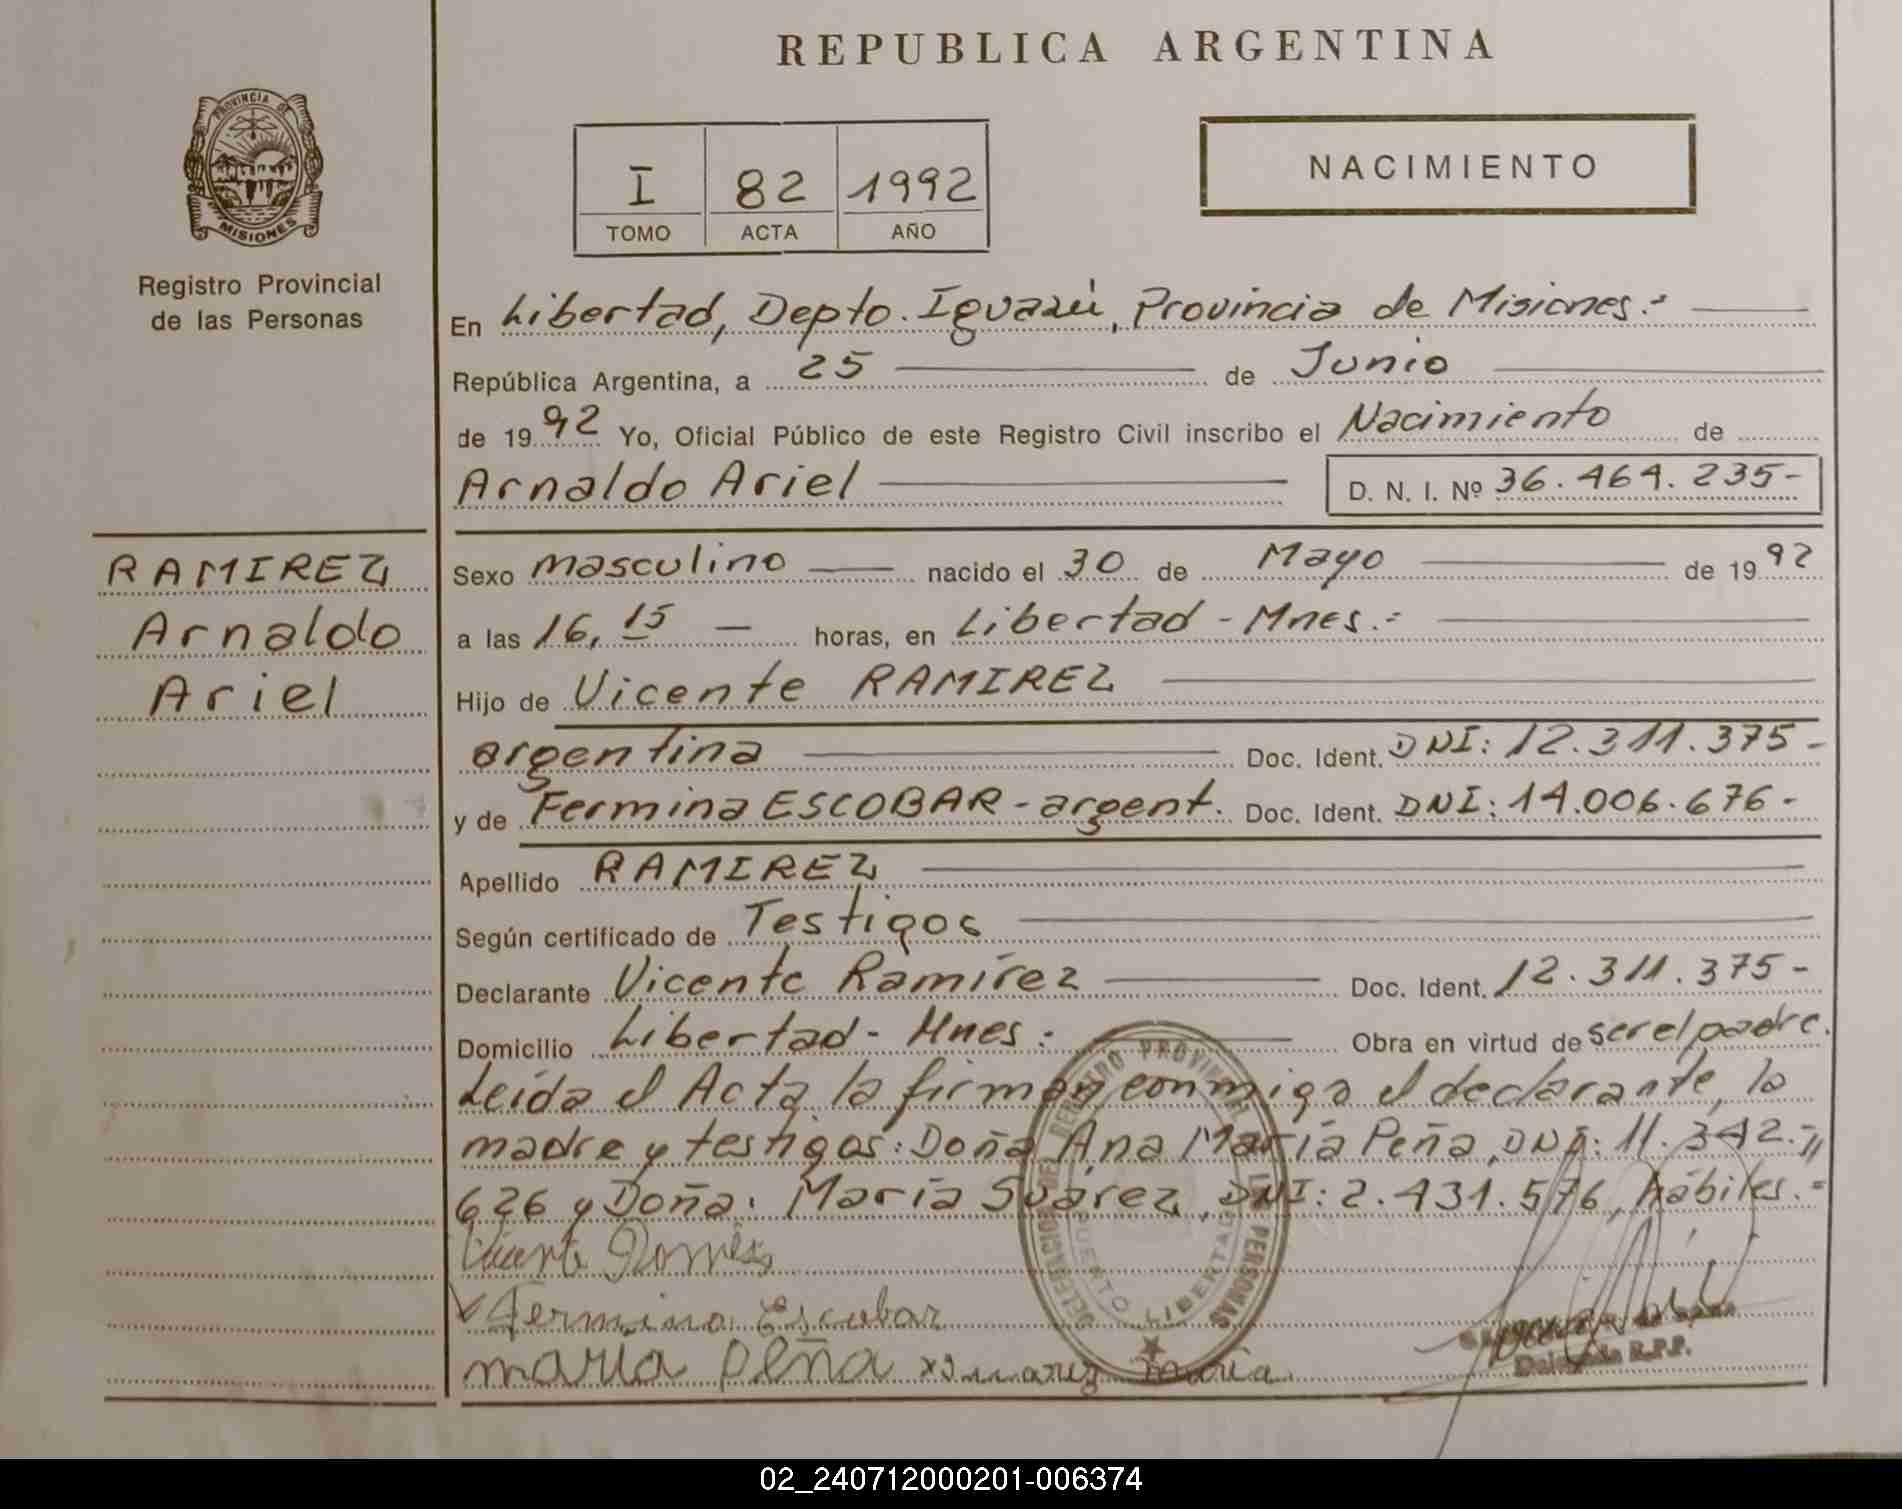 REPUBLICA ARGENTINA
PROVINCIA DE
MISIONES
Registro Provincial
de las Personas
I 82 1992
TOMO ACTA AÑO
NACIMIENTO
En Libertad, Depto. Iguazú, Provincia de Misiones.-
República Argentina, a 25 de Junio
de 1992 Yo, Oficial Público de este Registro Civil inscribo el Nacimiento de
Arnaldo Ariel D. N. I. Nº 36.464.235-
RAMIREZ
Arnaldo
Ariel
Sexo masculino nacido el 30 de Mayo de 1992
a las 16,15 horas, en Libertad - Mnes.-
Hijo de Vicente RAMIREZ
argentina Doc. Ident. DNI: 12.311.375-
y de Fermina ESCOBAR - argent. Doc. Ident. DNI: 14.006.676-
Apellido RAMIREZ
Según certificado de Testigos
Declarante Vicente Ramírez Doc. Ident. 12.311.375-
Domicilio Libertad - Mnes. Obra en virtud de ser el padre.
Leída el Acta, la firman conmigo el declarante, la
madre y testigos: Doña Ana María Peña, DNI: 11.342.-
626 y Doña María Suárez, DNI: 2.431.576, hábiles.-
DELEGACION DEL REGISTRO PROVINCIAL DE LAS PERSONAS
PUERTO LIBERTAD
Fermina Escobar
maria peña x Suarez maria
R.P.P.
02_240712000201-006374